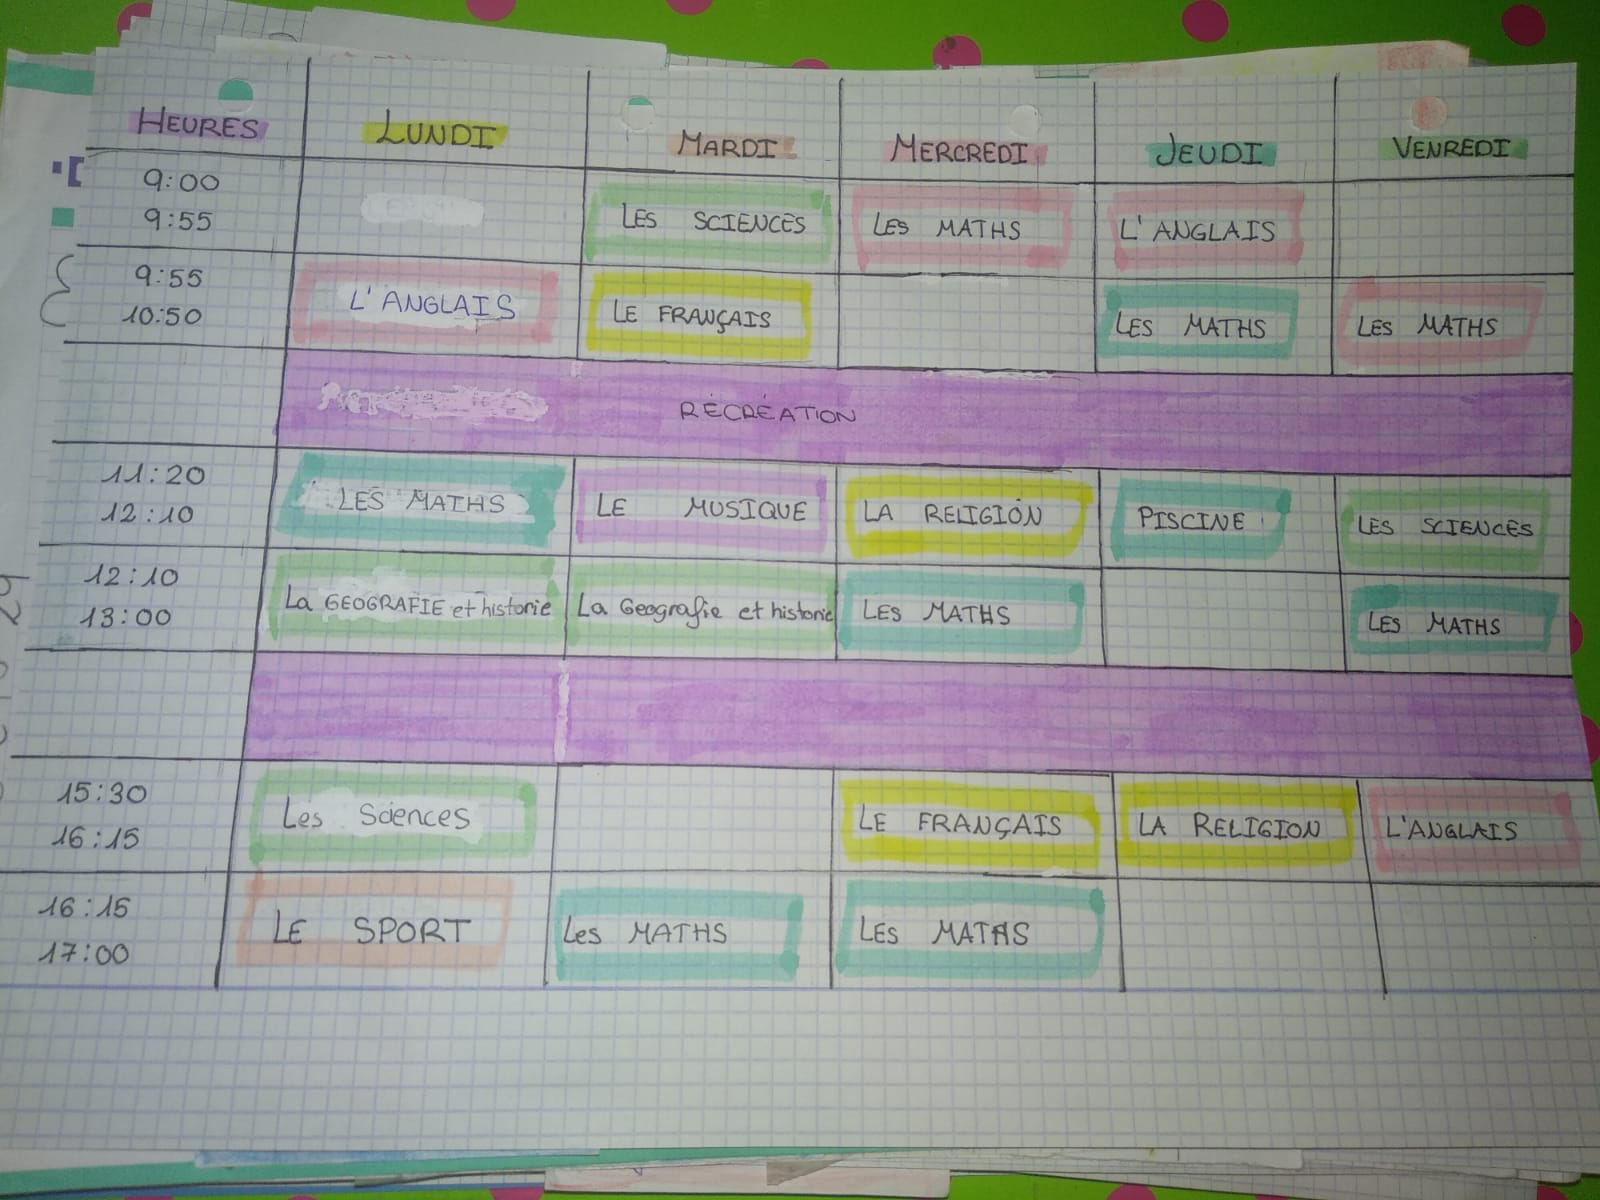 HEURES LUNDI MARDI MERCREDI JEUDI VENREDI
9:00
9:55 LES SCIENCES LES MATHS L'ANGLAIS
9:55
10:50 L'ANGLAIS LE FRANÇAIS LES MATHS LES MATHS
RÉCRÉATION
11:20
12:10 LES MATHS LE MUSIQUE LA RELIGIÓN PISCINE LES SCIENCES
12:10
13:00 La GEOGRAFIE et historie La Geografie et historie LES MATHS LES MATHS
15:30
16:15 Les Sciences LE FRANÇAIS LA RELIGION L'ANGLAIS
16:15
17:00 LE SPORT Les MATHS LES MATHS